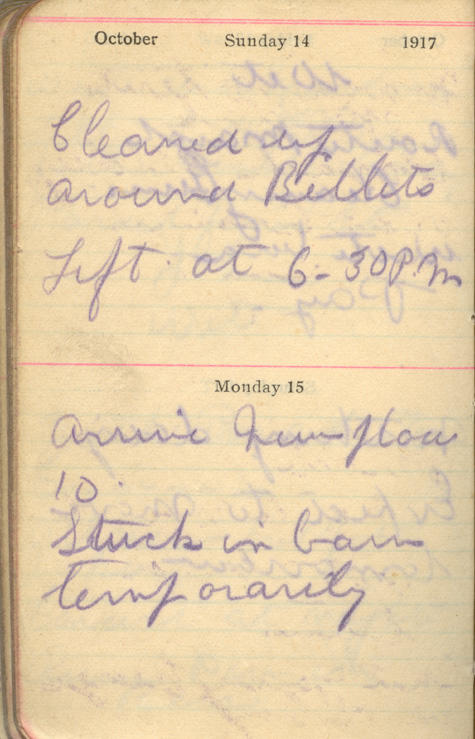 October Sunday 14 1917
Cleaned up
around Billets
Left at 6-30 P.M
Monday 15
arrive
10.
Stuck in barn
temporarily